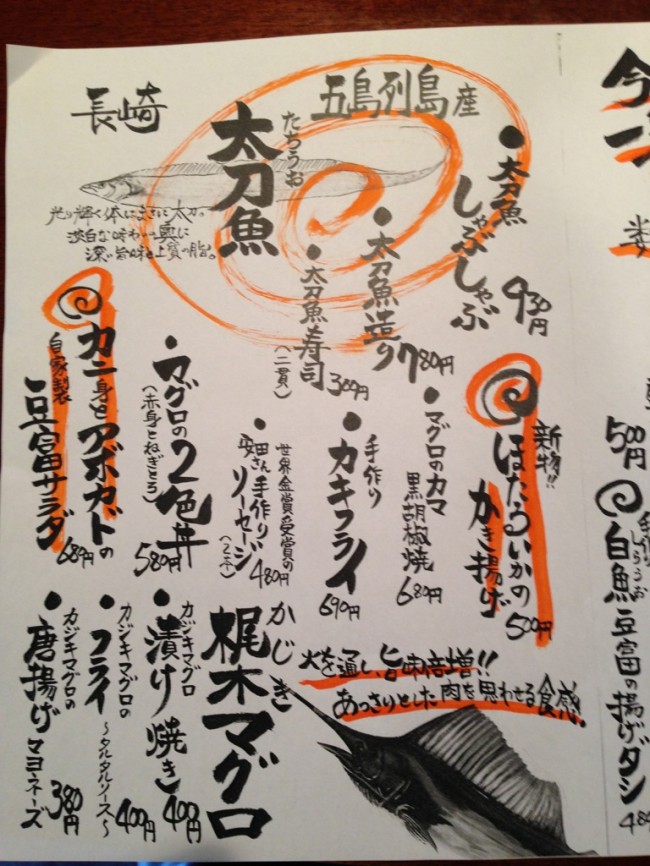 長崎
五島列島産
たちうお
太刀魚
光り輝く体はまさに太刀。
淡白な味わいの奥に
深い旨味と上質の脂。
●太刀魚
しゃぶしゃぶ
930円
●太刀魚造り 780円
●太刀魚寿司
(二貫)
300円
新物!!
ほたるいかの
かき揚げ
500円
●マグロのカマ
黒胡椒焼
680円
手作り
●カキフライ
690円
世界金賞受賞の
●安田さん手作り
ソーセージ
(2本)
480円
●マグロの2色丼
(赤身とねぎとろ)
580円
カニ身とアボカドの
自家製
豆富サラダ
680円
かじき
梶木マグロ
火を通し、旨味倍増!!
あっさりとした肉を思わせる食感!
●カジキマグロ
漬け焼き
400円
●カジキマグロの
フライ
~タルタルソース~
400円
●カジキマグロの
唐揚げ
マヨネーズ
380円
今
一
500円
手作り
しらうお
白魚豆富の揚げダシ